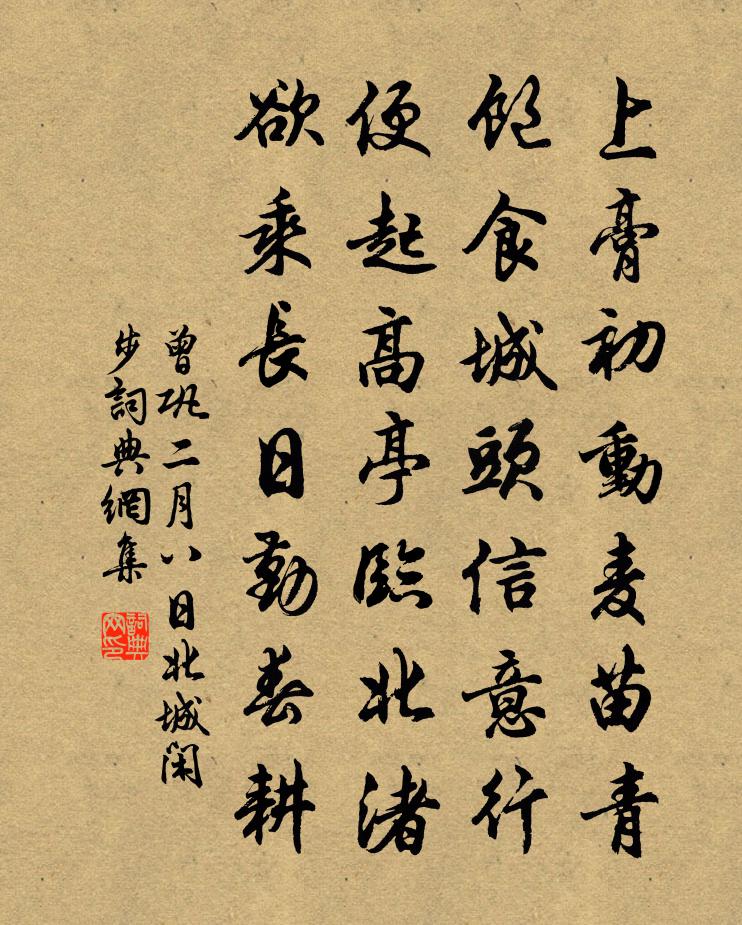 上膏初動麦苗青
飽食城頭信意行
便起高亭臨北渚
欲乘長日勤春耕
曾巩二月八日北城闲
步詞典網集
詞典
网印